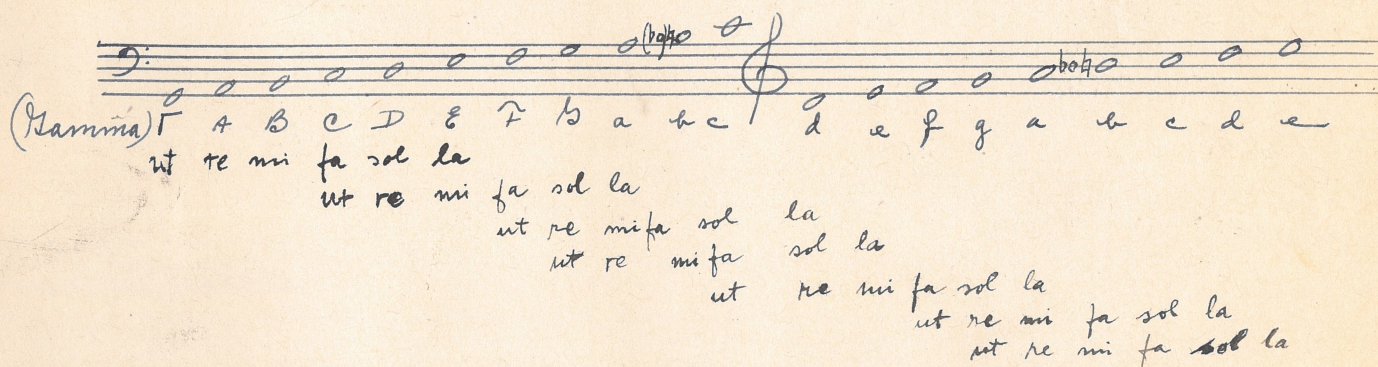 (Gamma) Γ A B C D E F G a b c d e f g a b c d e
ut re mi fa sol la
ut re mi fa sol la
ut re mi fa sol la
ut re mi fa sol la
ut re mi fa sol la
ut re mi fa sol la
ut re mi fa sol la